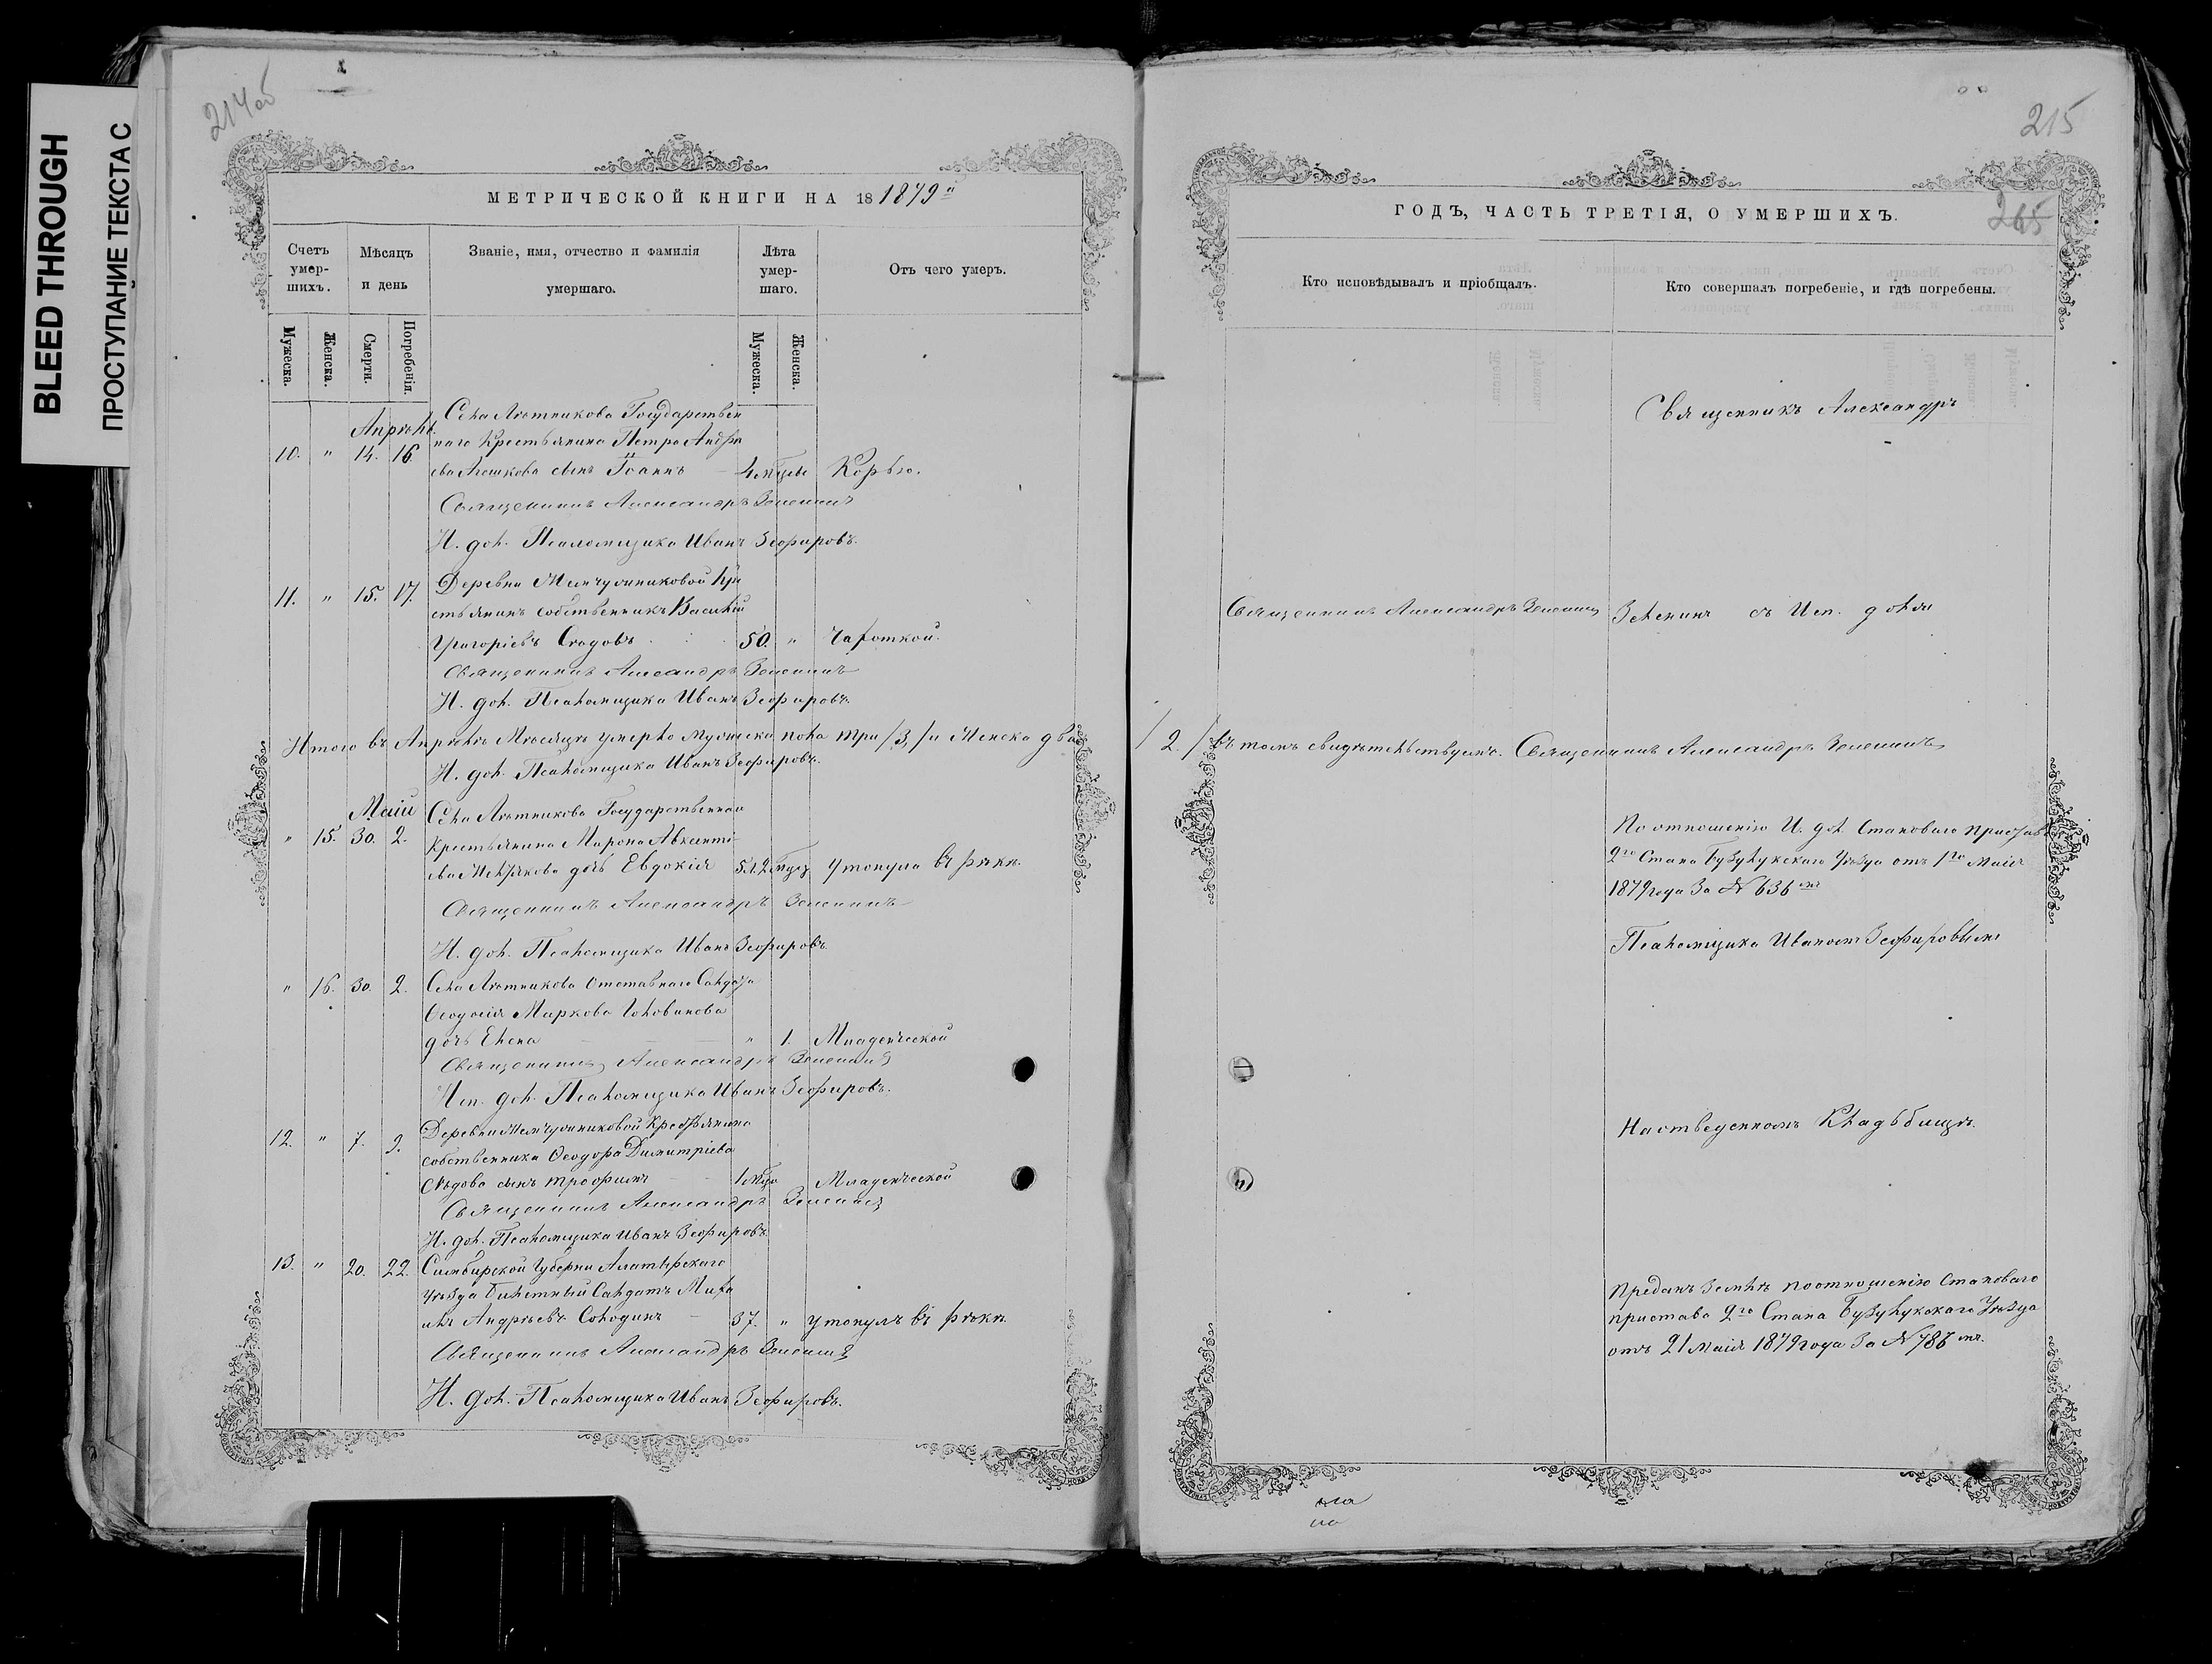 BLEED THROUGH
ПРОСТУПАНИЕ ТЕКСТА С
214 об
МЕТРИЧЕСКОЙ КНИГИ НА 18 1879й
Счетъ умер-шихъ.
Мѣсяцъ и день
Званіе, имя, отчество и фамилія умершаго.
Лѣта умер-шаго.
Отъ чего умеръ.
Мужеска.
Женска.
Смерти.
Погребенія.
Мужеска.
Женска.
Апрѣль.
Села Лѣтникова Государствен
наго Крестьянина Петра Андре
10. " 14. 16. ева сынъ Іоаннъ 4 мѣцы Корью.
Священникъ Александръ Зеленинъ
И. дол. Псаломщика Иванъ Зефировъ.
Деревни Жемчужниковой Кре
11. " 15. 17. стьянинъ собственникъ Василій
Григорьевъ 50. " Чахоткой.
Священникъ Александръ Зеленинъ
И. дол. Псаломщика Иванъ Зефировъ.
Итого въ Апрѣлѣ Мѣсяцѣ умерло Мужеска пола три /3/ и Женска два
И. дол. Псаломщика Иванъ Зефировъ.
Маій
Села Лѣтникова Государственнаго
" 15. 30. 2. Крестьянина Мирона Авксенті-
ева дочь Евдокія 5 л. 2 мца Утонула въ рѣкѣ.
Священникъ Александръ Зеленинъ
И. дол. Псаломщика Иванъ Зефировъ.
" 16. 30. 2. Села Лѣтникова Отставнаго Солдата
Ѳеодосія Маркова Головинова
дочь Елена " 1. Младенческой
Священникъ Александръ Зеленинъ
Исп. дол. Псаломщика Иванъ Зефировъ.
12. " 7. 9. Деревни Жемчужниковой Крестьянина
собственника Ѳеодора Димитріева
Сѣдова сынъ Трофимъ 1 мца Младенческой
Священникъ Александръ Зеленинъ
И. дол. Псаломщика Иванъ Зефировъ.
13. " 20. 22. Симбирской Губерніи Алатырскаго
Уѣзда билетный Солдатъ Миха
илъ Андреевъ Солодинъ 37. " утонулъ въ рѣкѣ.
Священникъ Александръ Зеленинъ
И. дол. Псаломщика Иванъ Зефировъ.
215
265
ГОДЪ, ЧАСТЬ ТРЕТІЯ, О УМЕРШИХЪ.
Кто исповѣдывалъ и пріобщалъ.
Кто совершалъ погребеніе, и гдѣ погребены.
Священникъ Александръ
Священникъ Александръ Зеленинъ
Зеленинъ съ Исп. долж
/2./ Въ томъ свидѣтельствуемъ. Священникъ Александръ Зеленинъ
По отношенію И. дол. Становаго Пристава
2го Стана Бузулукскаго Уѣзда отъ 1го Маія
1879 года За № 636мъ
Псаломщика Иваномъ Зефировымъ
На отведенномъ Кладбищѣ.
Преданъ Землѣ по отношенію Становаго
пристава 2го Стана Бузулукскаго Уѣзда
отъ 21 Маія 1879 года За № 786мъ.